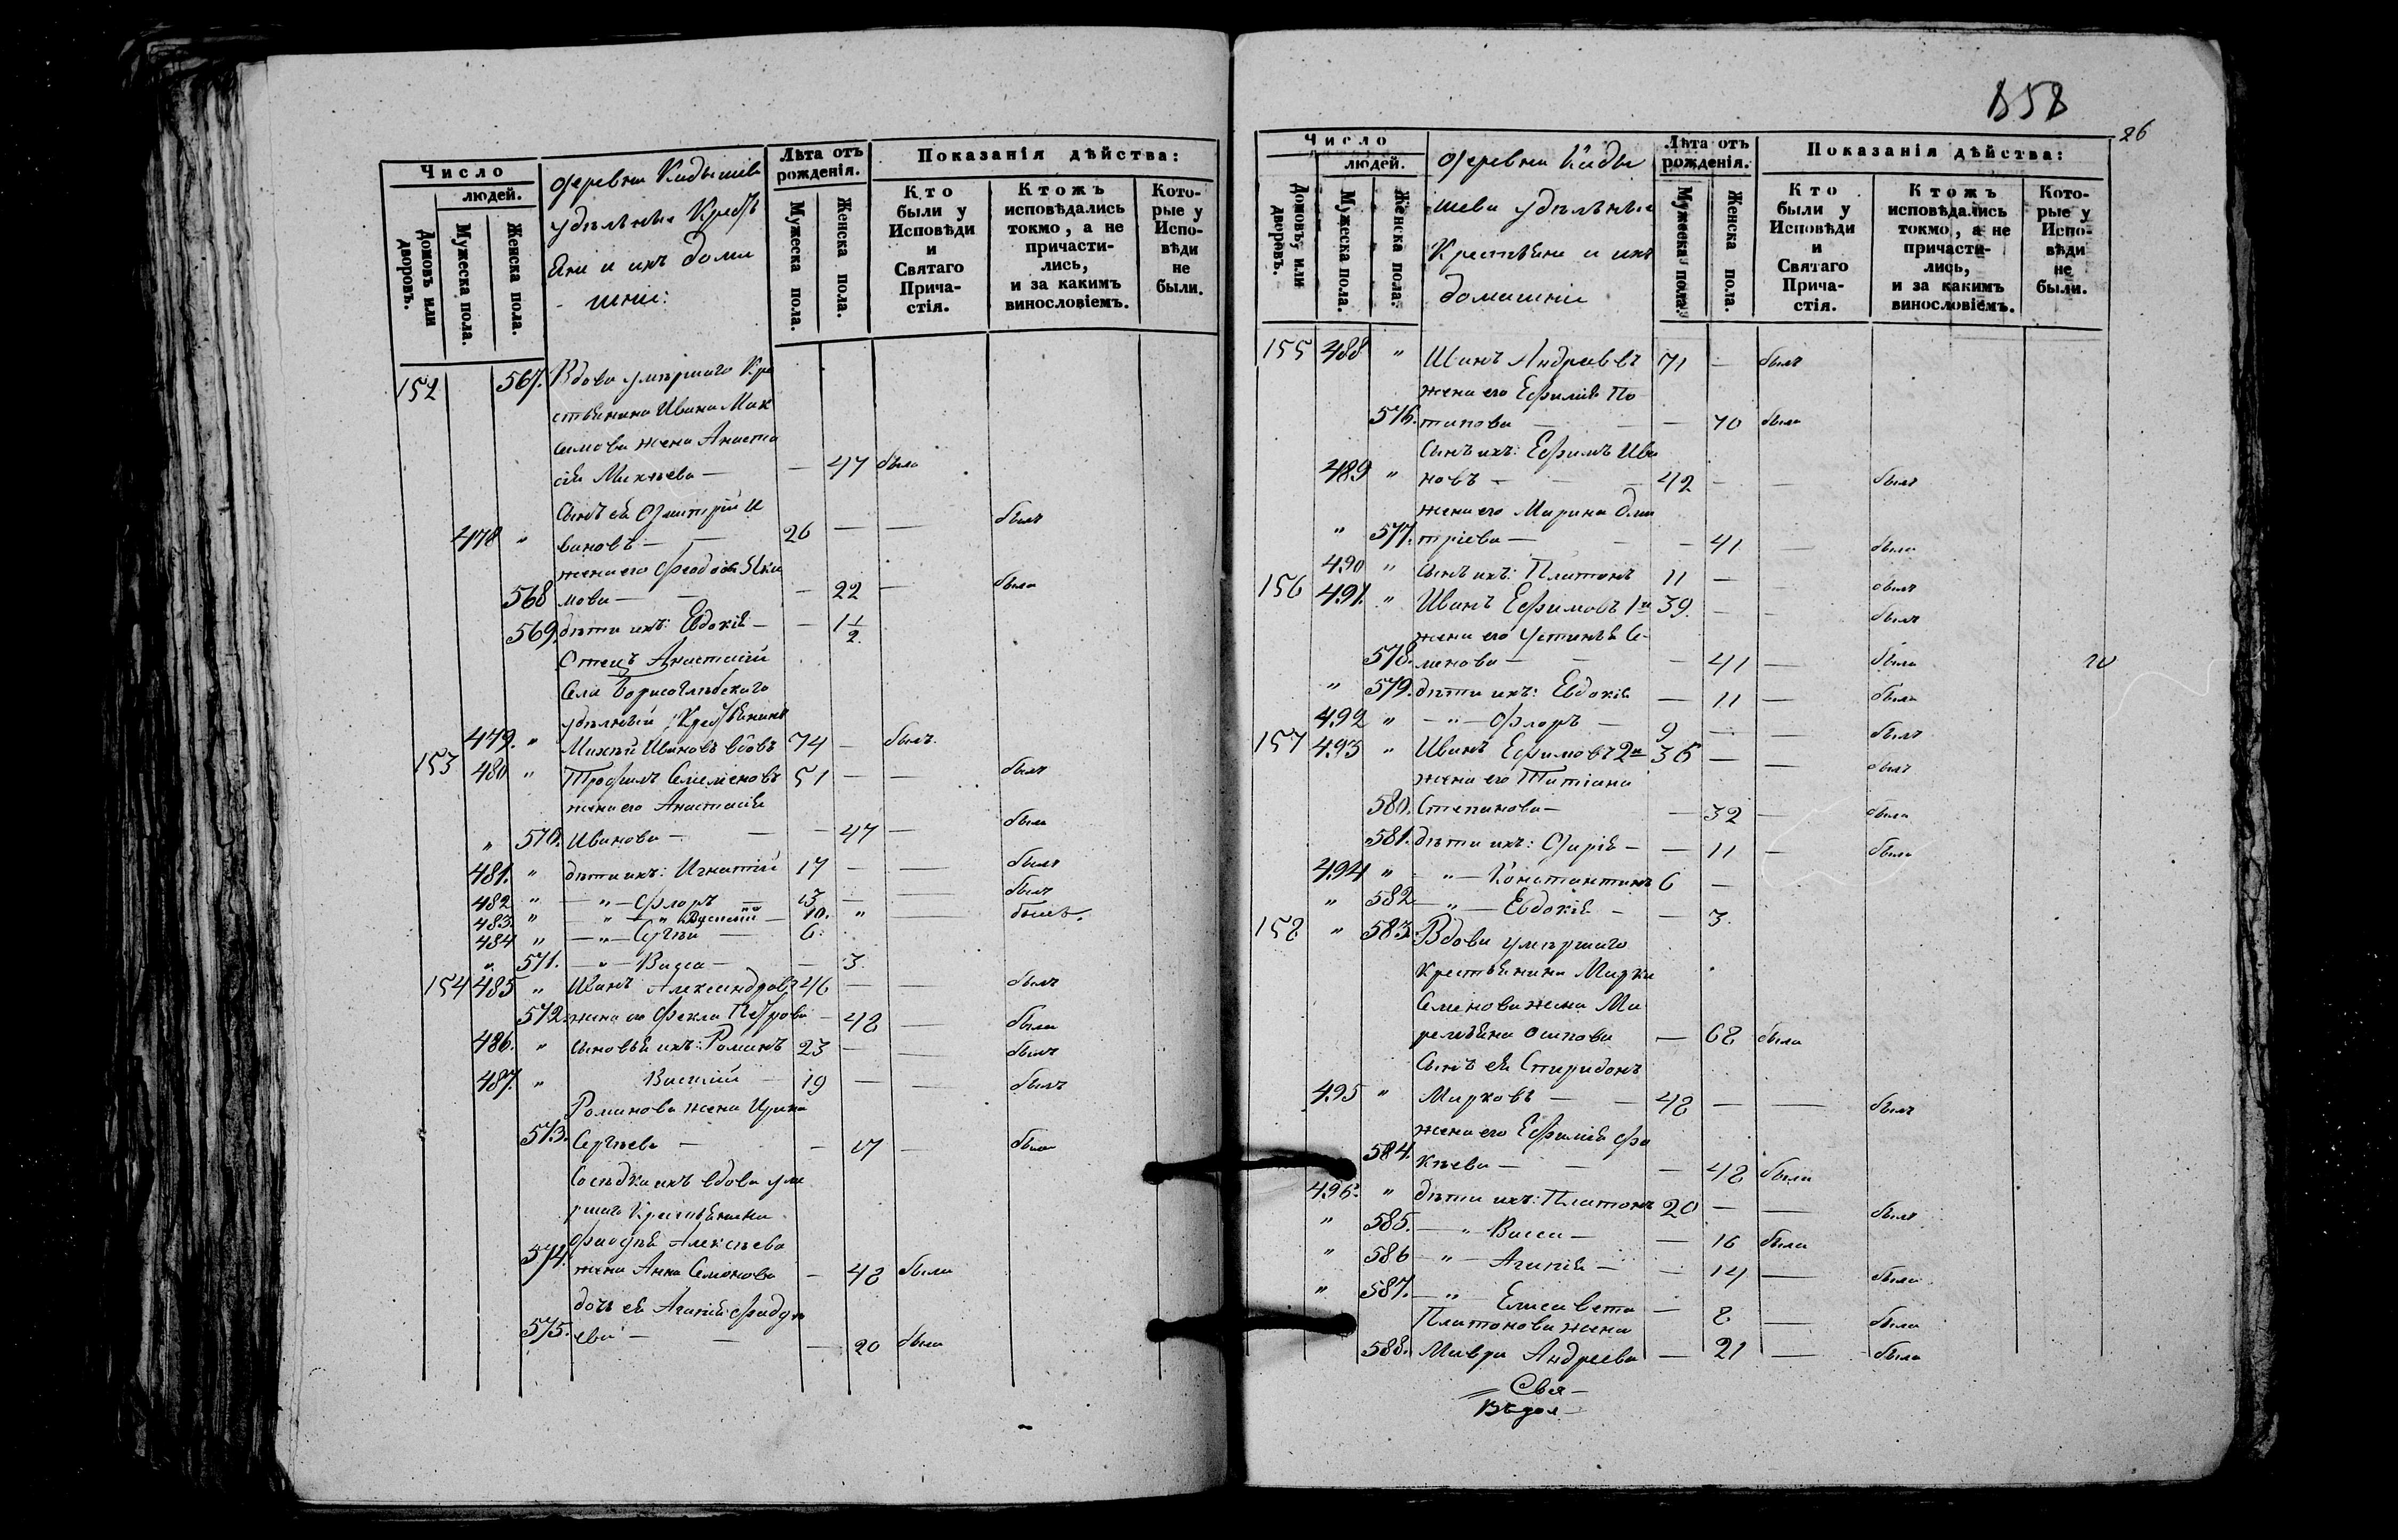 Число
людей.
Домовъ или дворовъ.
Мужеска пола.
Женска пола.
деревни Кадышева
удѣльные Кресть
яне и ихъ дома
шніе:
Лѣта отъ рожденія.
Мужеска пола.
Женска пола.
Показанія дѣйства:
Кто были у Исповѣди и Святаго Прича-стія.
Ктожъ исповѣдались токмо, а не причасти-лись, и за какимъ винословіемъ.
Кото-рые у Испо-вѣди не были.
152 567. Вдова умершаго Кре
стьянина Ивана Мак
симова жена Анаста
сія Михѣева — — 47 была
Сынъ ея Дмитрій И
478 " вановъ — — 26 — — былъ
жена его Феодосія Яки
568 мова — — — 22 — была
569. дѣти ихъ: Евдокія — — 1 1/2.
Отецъ Анастасіи
Села Борисоглѣбскаго
удѣльный Крестьянинъ
479. " Михѣй Ивановъ вдовъ 74 — былъ.
153 480 " Трофимъ Семеновъ 51 — — былъ
жена его Анастасія
" 570. Иванова — — — 47 — была
481. " дѣти ихъ: Игнатій 17 — — былъ
482 " — " — Флоръ — 13 — — былъ
483. " — " — Василій — 10. " былъ.
484 " — " — Сергѣй — 6.
" 571. — " — Васса — — 3.
154 485 " Иванъ Александровъ 46 — — былъ
572. жена его Фекла Петрова — 48 — была
486. " сыновья ихъ: Романъ 23 — — былъ
487. " Василій — 19 — — былъ
Романова жена Ирина
573. Сергѣева — — 17 — была
Сосѣдка ихъ вдова уме
ршаго Крестьянина
Фадѣя Алексѣева
574. жена Анна Семенова — 48 была
дочь ея Агапія Фадѣ
575. ева — — — 20 была
858
26
Число
людей.
Домовъ, или дворовъ.
Мужеска пола.
Женска пола.
деревни Кады
шева удѣльные
Крестьяне и ихъ
домашніе
Лѣта отъ рожденія.
Мужеска пола.
Женска пола.
Показанія дѣйства:
Кто были у Исповѣди и Святаго Прича-стія.
Ктожъ исповѣдались токмо, а не причасти-лись, и за какимъ винословіемъ.
Кото-рые у Испо-вѣди не были.
155 488 " Иванъ Андреевъ 71 — былъ
жена его Ефимія По
576. тапова — — — 70 была
Сынъ ихъ: Ефимъ Ива
489 " новъ — — — 42 — — былъ
жена его Марина Дми
" 577. тріева — — — 41 — была
490 " сынъ ихъ: Платонъ 11 — былъ
156 491. " Иванъ Ефимовъ 1й 39. — — былъ
жена его Устинья Се-
578. менова — — — 41 — была
" 579. дѣти ихъ: Евдокія — 11 — была
492 " — " — Флоръ — 9 — — былъ
157 493 " Иванъ Ефимовъ 2й 36 — — былъ
жена его Татіана
580. Степанова — — 32 — была
581. дѣти ихъ: Дарія — — 11 — была
494 " — " — Константинъ 6 —
" 582. — " — Евдокія — — 3.
158 " 583. Вдова умершаго
Крестьянина Марка
Семенова жена Ма
ремьяна Осипова — 68 была
Сынъ ея Спиридонъ
495 " Марковъ — — 48 — — былъ
жена его Ефимія Фо
584. кѣева — — — 48 была
496. " дѣти ихъ: Платонъ 20 — — былъ
" 585. — " — Васса — — 16 была
" 586 — " — Агапія — — 14 — была
" 587. — " — Елисавета — 8 — была
Платонова жена
588. Мавра Андреева — 21 — была